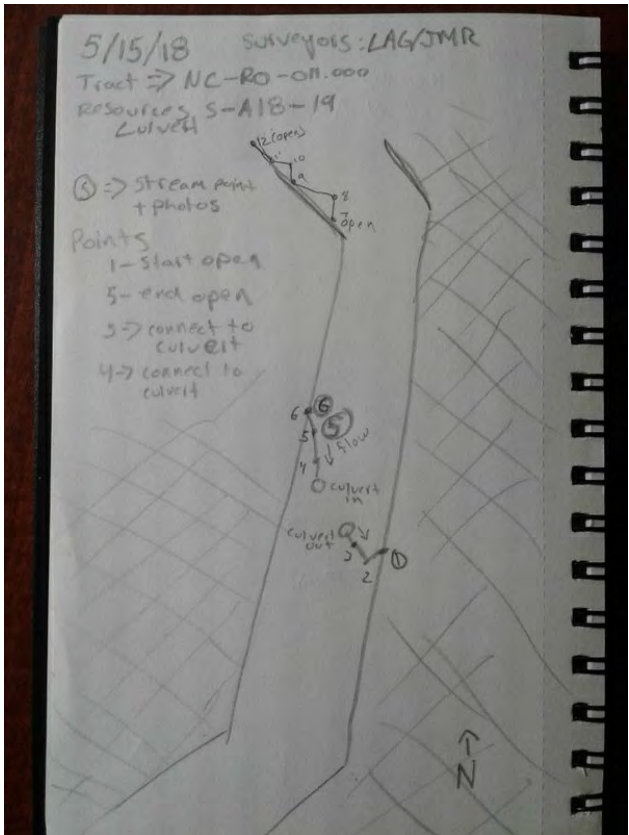 5/15/18 Surveyors: LAG/JMR
Tract => NC-RO-011.000
Resources S-A18-19
Culvert
⑤ => Stream point
+ photos
Points
1 - Start open
5 - end open
3 -> connect to
culvert
4 -> connect to
culvert
12 (open)
11
10
9
8
7
open
6 ⑥
5 ⑤
4 flow
culvert
in
culvert
out
3
2
①
N